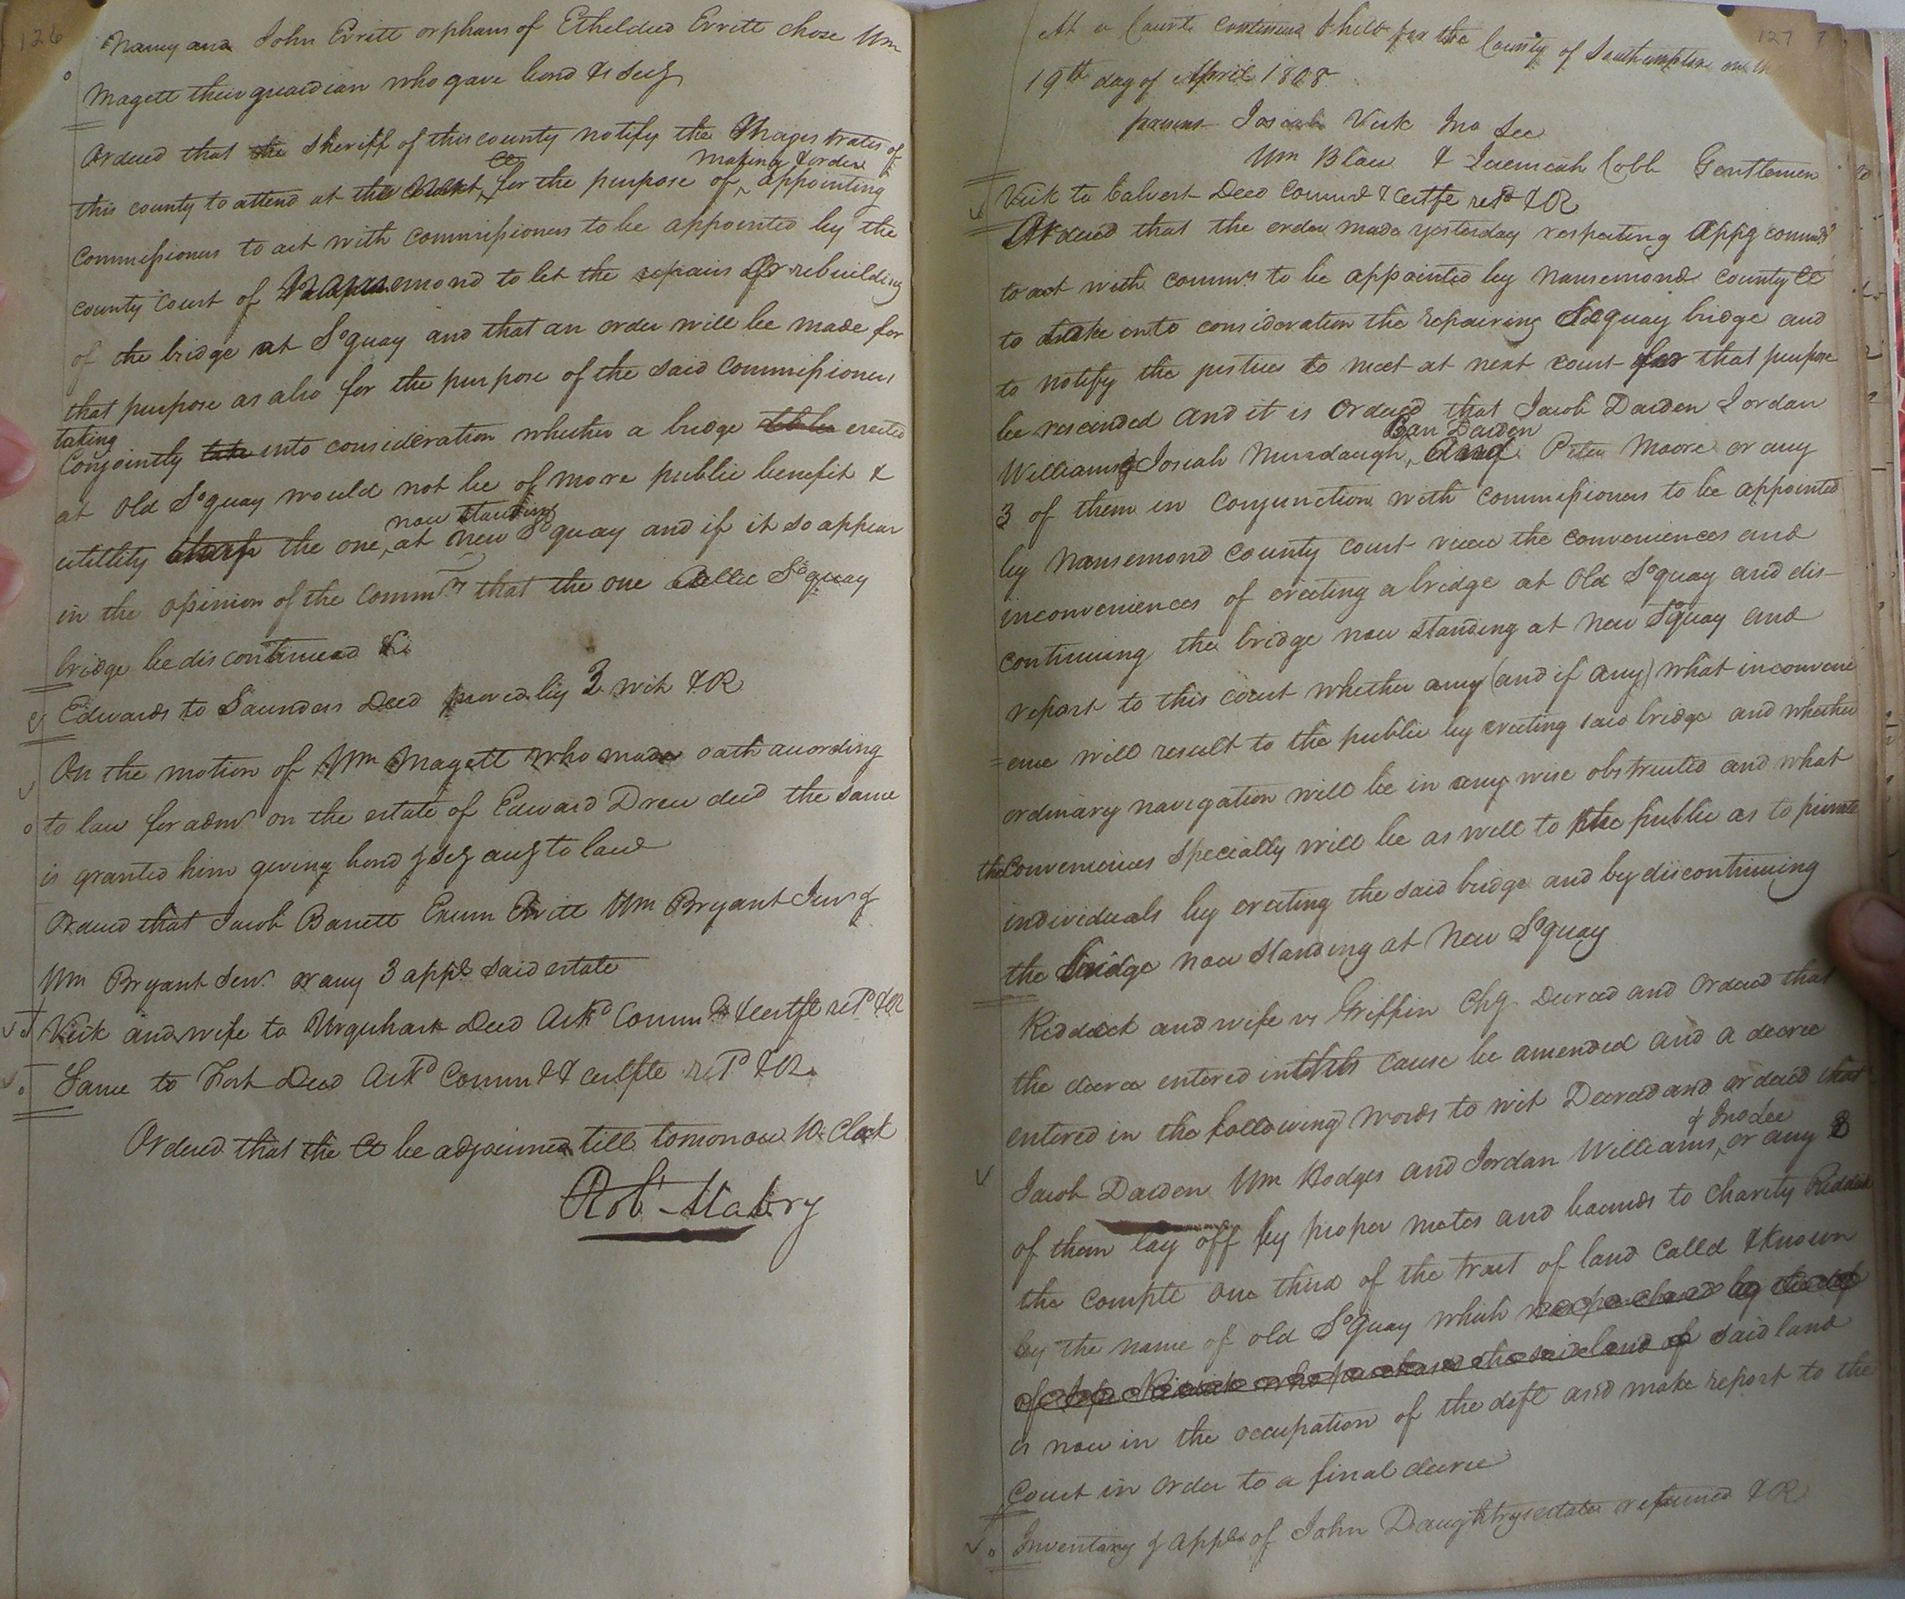 126
Nancy and John Evritt orphans of Etheldred Evritt chose Wm
Magett their guardian who gave bond & secy
Ordered that the sheriff of this county notify the Magistrates of
this county to attend at the next Ct for the purpose of making & order appointing
Commissioners to act with commissioners to be appointed by the
County Court of Nansemond to let the repairs or rebuilding
of the bridge at So quay and that an order will be made for
that purpose as also for the purpose of the said Commissioners
Conjointly taking into consideration whether a bridge erected
at Old So quay would not be of more public benefit &
utillity the one now standing at New So quay and if it so appear
in the opinion of the Commrs that the one So quay
bridge be discontinued &c
Edwards to Saunders Deed proved by 2 wit & OR
On the motion of Wm Magett who made oath according
to law for admn on the estate of Edward Drew decd the same
is granted him giving bond & secy accg to law
Ordered that Jacob Barrett Exum Evritt Wm Bryant Junr &
Wm Bryant Senr or any 3 appe said estate
Vick and wife to Urquhart Deed Ackd Commn & certfe retd & OR
Same to Fort Deed Ackd Commn & certfte retd & OR
Ordered that the Ct be adjourned till tomorrow 10 Clock
Robt Mabry
127
At a Court continued & held for the County of Southampton on the
19th day of April 1808
present Josiah Vick Jno Lee
Wm Blow & Jeremiah Cobb Gentlemen
Vick to Calvert Deed Commn & certfe retd & OR
Ordered that the order made yesterday respecting Appg commrs
to act with commrs to be appointed by Nansemond County Ct
to take into consideration the repairing So quay bridge and
to notify the justices to meet at next court for that purpose
be rescinded and it is Ordered that Jacob Darden Jordan
Williams Josiah Murdaugh, Ben Darden Peter Moore or any
3 of them in Conjunction with commissioners to be appointed
by Nansemond County Court view the conveniences and
inconveniences of erecting a bridge at Old So quay and dis-
continuing the bridge now standing at New So quay and
report to this court whether any (and if any) what inconveni
=ence will result to the public by erecting said bridge and whether
ordinary navigation will be in any wise obstructed and what
the Conveniences specially will be as well to the public as to private
individuals by erecting the said bridge and by discontinuing
the bridge now standing at New So quay
Riddick and wife vs Griffin Chy Decreed and Ordered that
the decree entered in this cause be amended and a decree
entered in the following words to wit Decreed and ordered that
Jacob Darden Wm Hodges and Jordan Williams & Jno Lee or any 3
of them lay off by proper metes and bounds to Charity Riddick
the complt one third of the tract of land Calld & Known
by the name of old So quay which was purchased by the
of who purchased the said land of said land
is now in the occupation of the deft and make report to the
Court in order to a final decree
Inventory & apps of John Daughtrys estate returned & OR